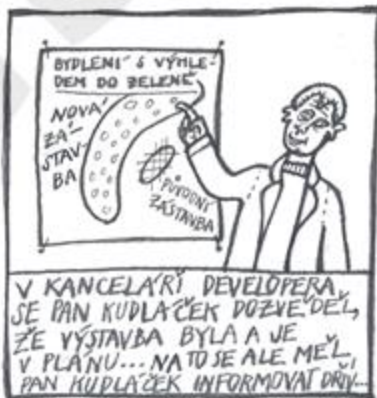 BYDLENÍ S VÝHLE-
DEM DO ZELENĚ
NOVÁ
ZÁ-
STAV-
BA
PŮVODNÍ
ZÁSTAVBA
V KANCELÁŘI DEVELOPERA
SE PAN KUDLÁČEK DOZVĚDĚL,
ŽE VÝSTAVBA BYLA A JE
V PLÁNU... NA TO SE ALE MĚL
PAN KUDLÁČEK INFORMOVAT DŘÍV...